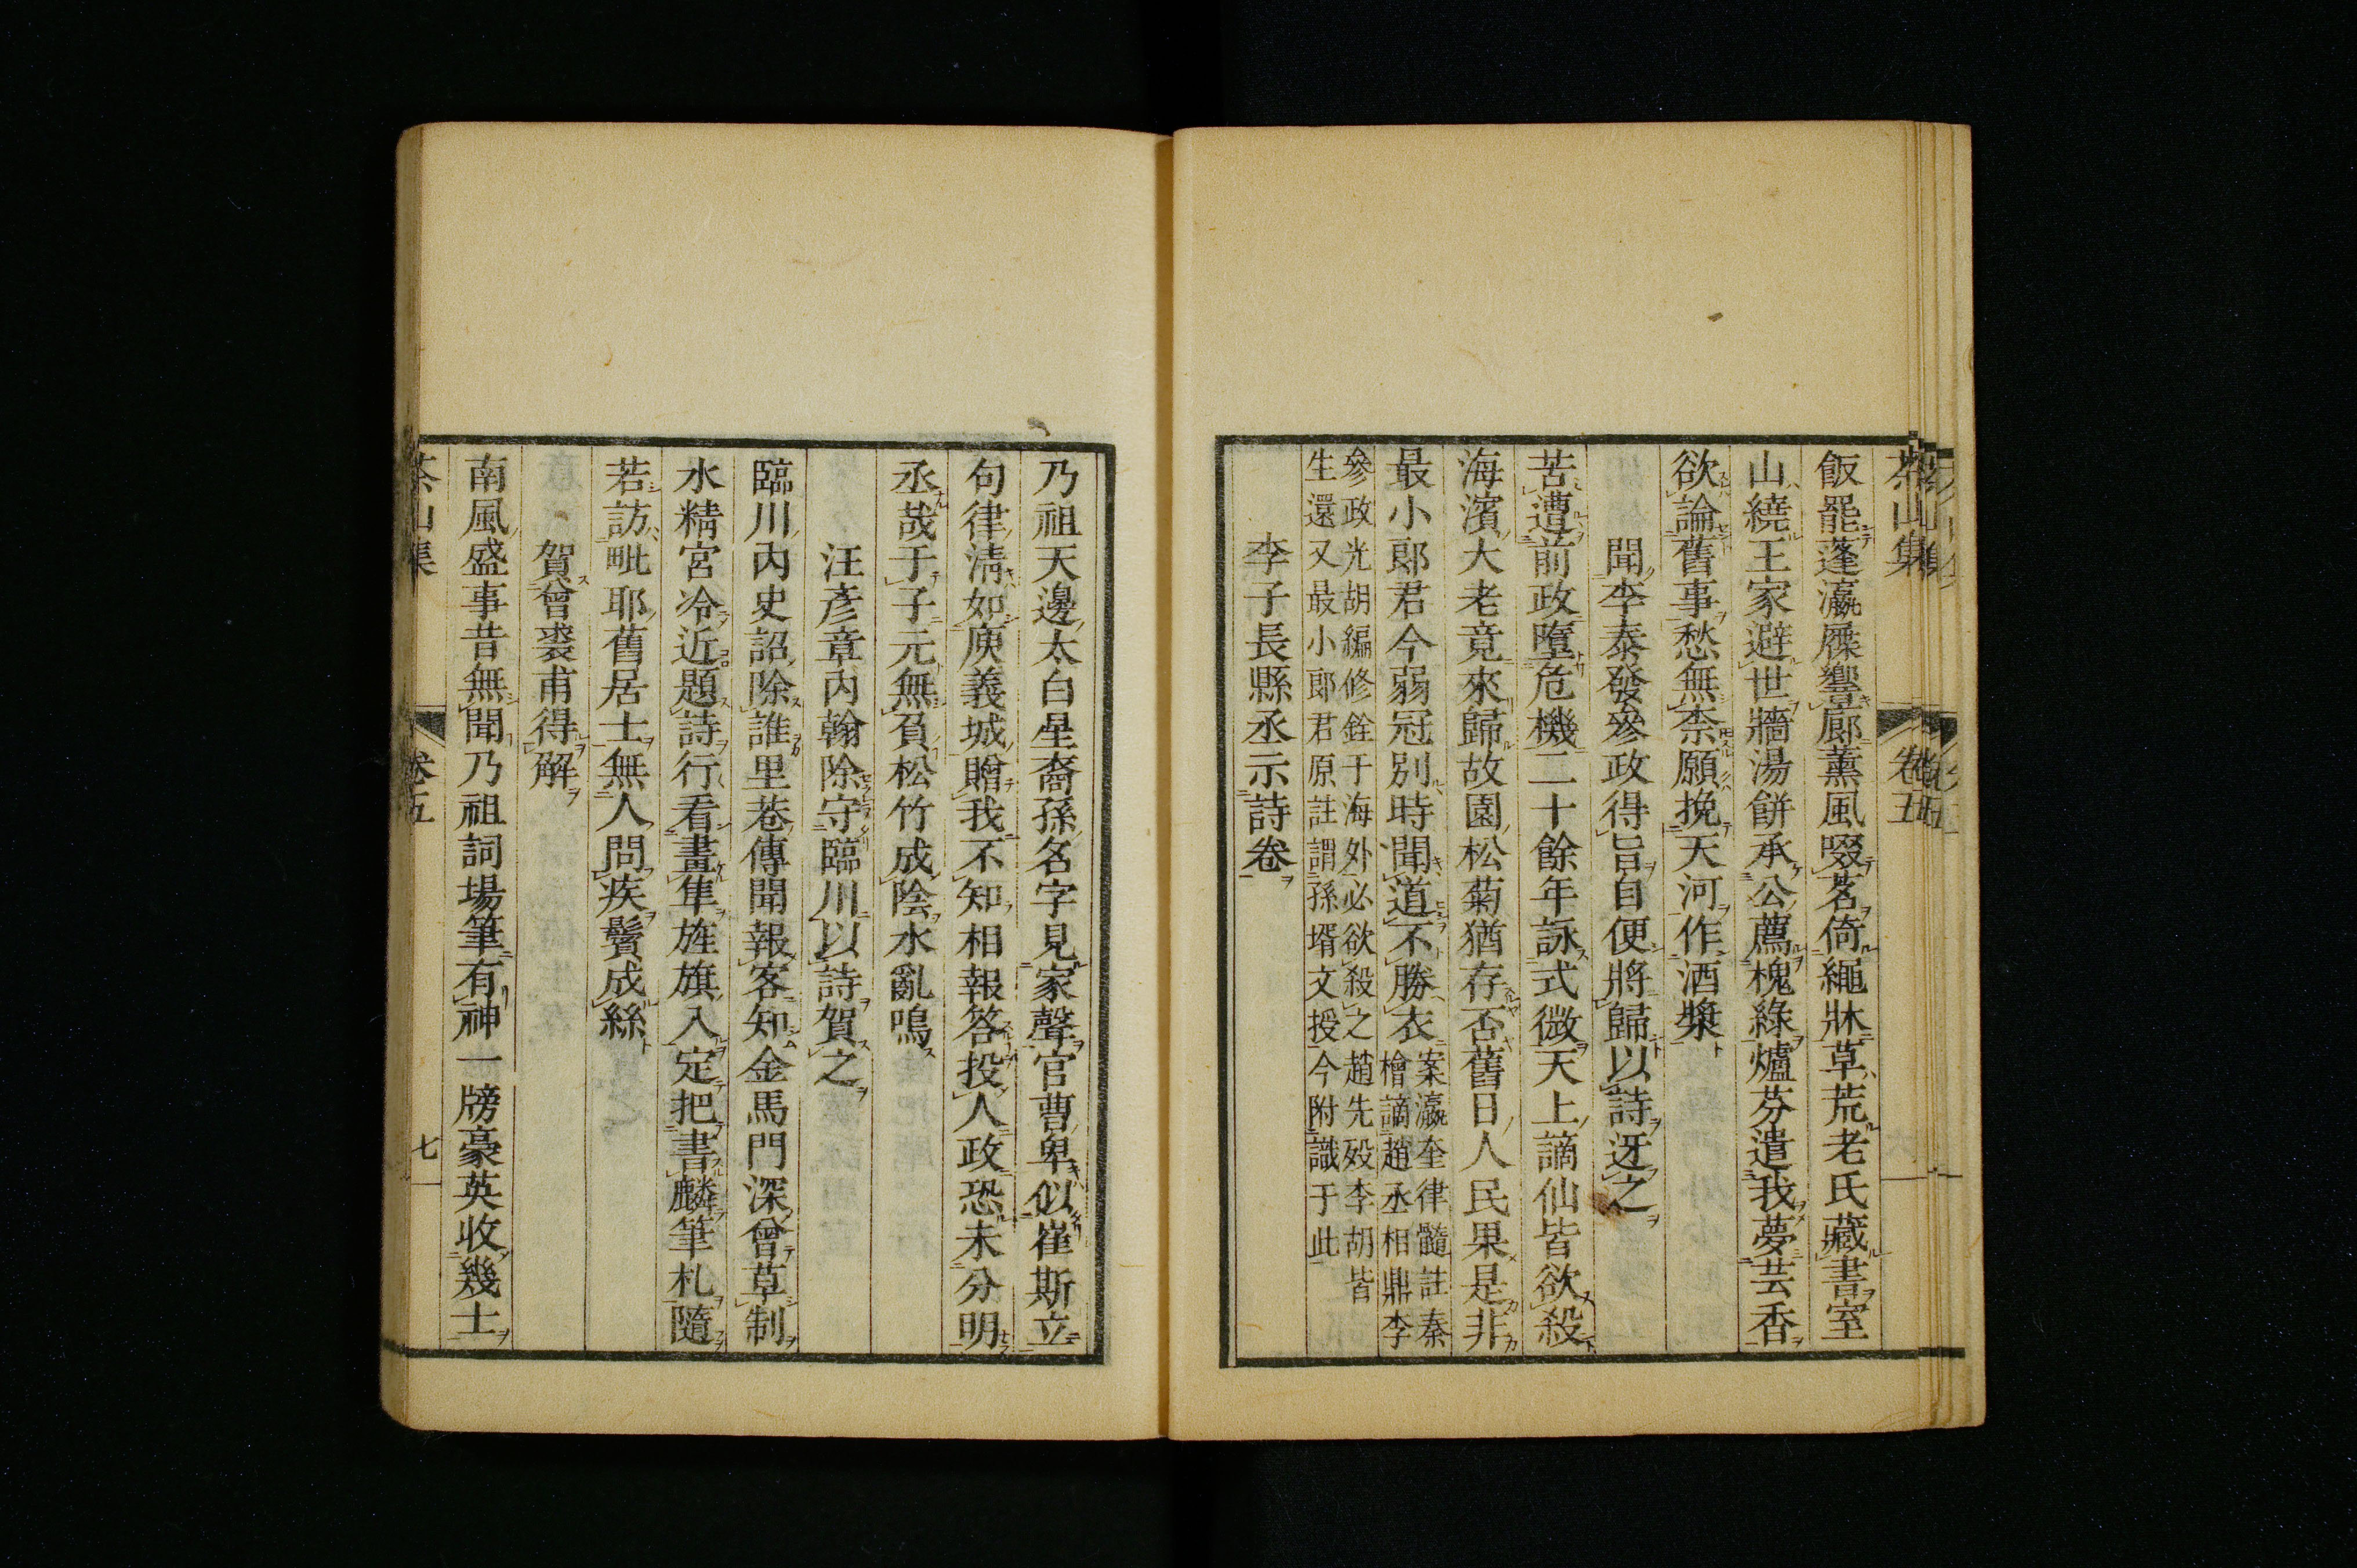 茶山集 卷五
飯罷蓬瀛屧響廊薰風啜茗倚繩牀草荒老氏藏書室
山繞王家避世牆湯餅承公薦槐綠爐芬遣我夢芸香
欲論舊事愁無柰願挽天河作酒漿
聞李泰發參政得旨自便將歸以詩迓之
苦遭前政墮危機二十餘年詠式微天上謫仙皆欲殺
海濱大老竟來歸故園松菊猶存否舊日人民果是非
最小郎君今弱冠別時聞道不勝衣
案瀛奎律髓註秦
檜謫趙丞相鼎李
參政光胡編修銓于海外必欲殺之趙先歿李胡皆
生還又最小郎君原註謂孫壻文授今附識于此
李子長縣丞示詩卷
乃祖天邊太白星裔孫名字見家聲官曹卑似崔斯立
句律淸如庾義城贈我不知相報答投人政恐未分明
丞哉于子元無負松竹成陰水亂鳴
汪彥章內翰除守臨川以詩賀之
臨川內史詔除誰里巷傳聞報客知金馬門深曾草制
水精宮冷近題詩行看畫隼旌旗入定把書麟筆札隨
若訪毗耶舊居士無人問疾鬢成絲
賀曾裘甫得解
南風盛事昔無聞乃祖詞場筆有神一牓豪英收幾士
茶山集 卷五 七